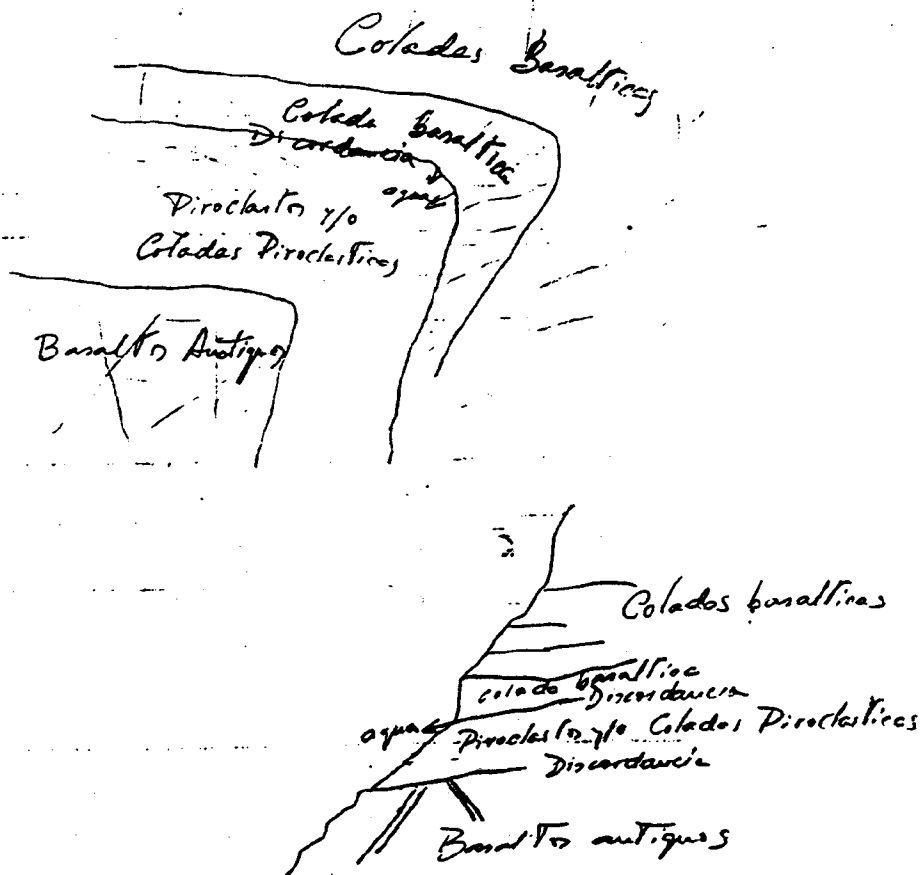 Coladas Basalticas
Colada basaltica
Discordancia
agua
Piroclastos y/o
Coladas Piroclasticas
Basaltos Antiguos
Colados basalticas
colado basaltica
Discordancia
agua
Piroclastos y/o Colados Piroclasticas
Discordancia
Basaltos antiguos